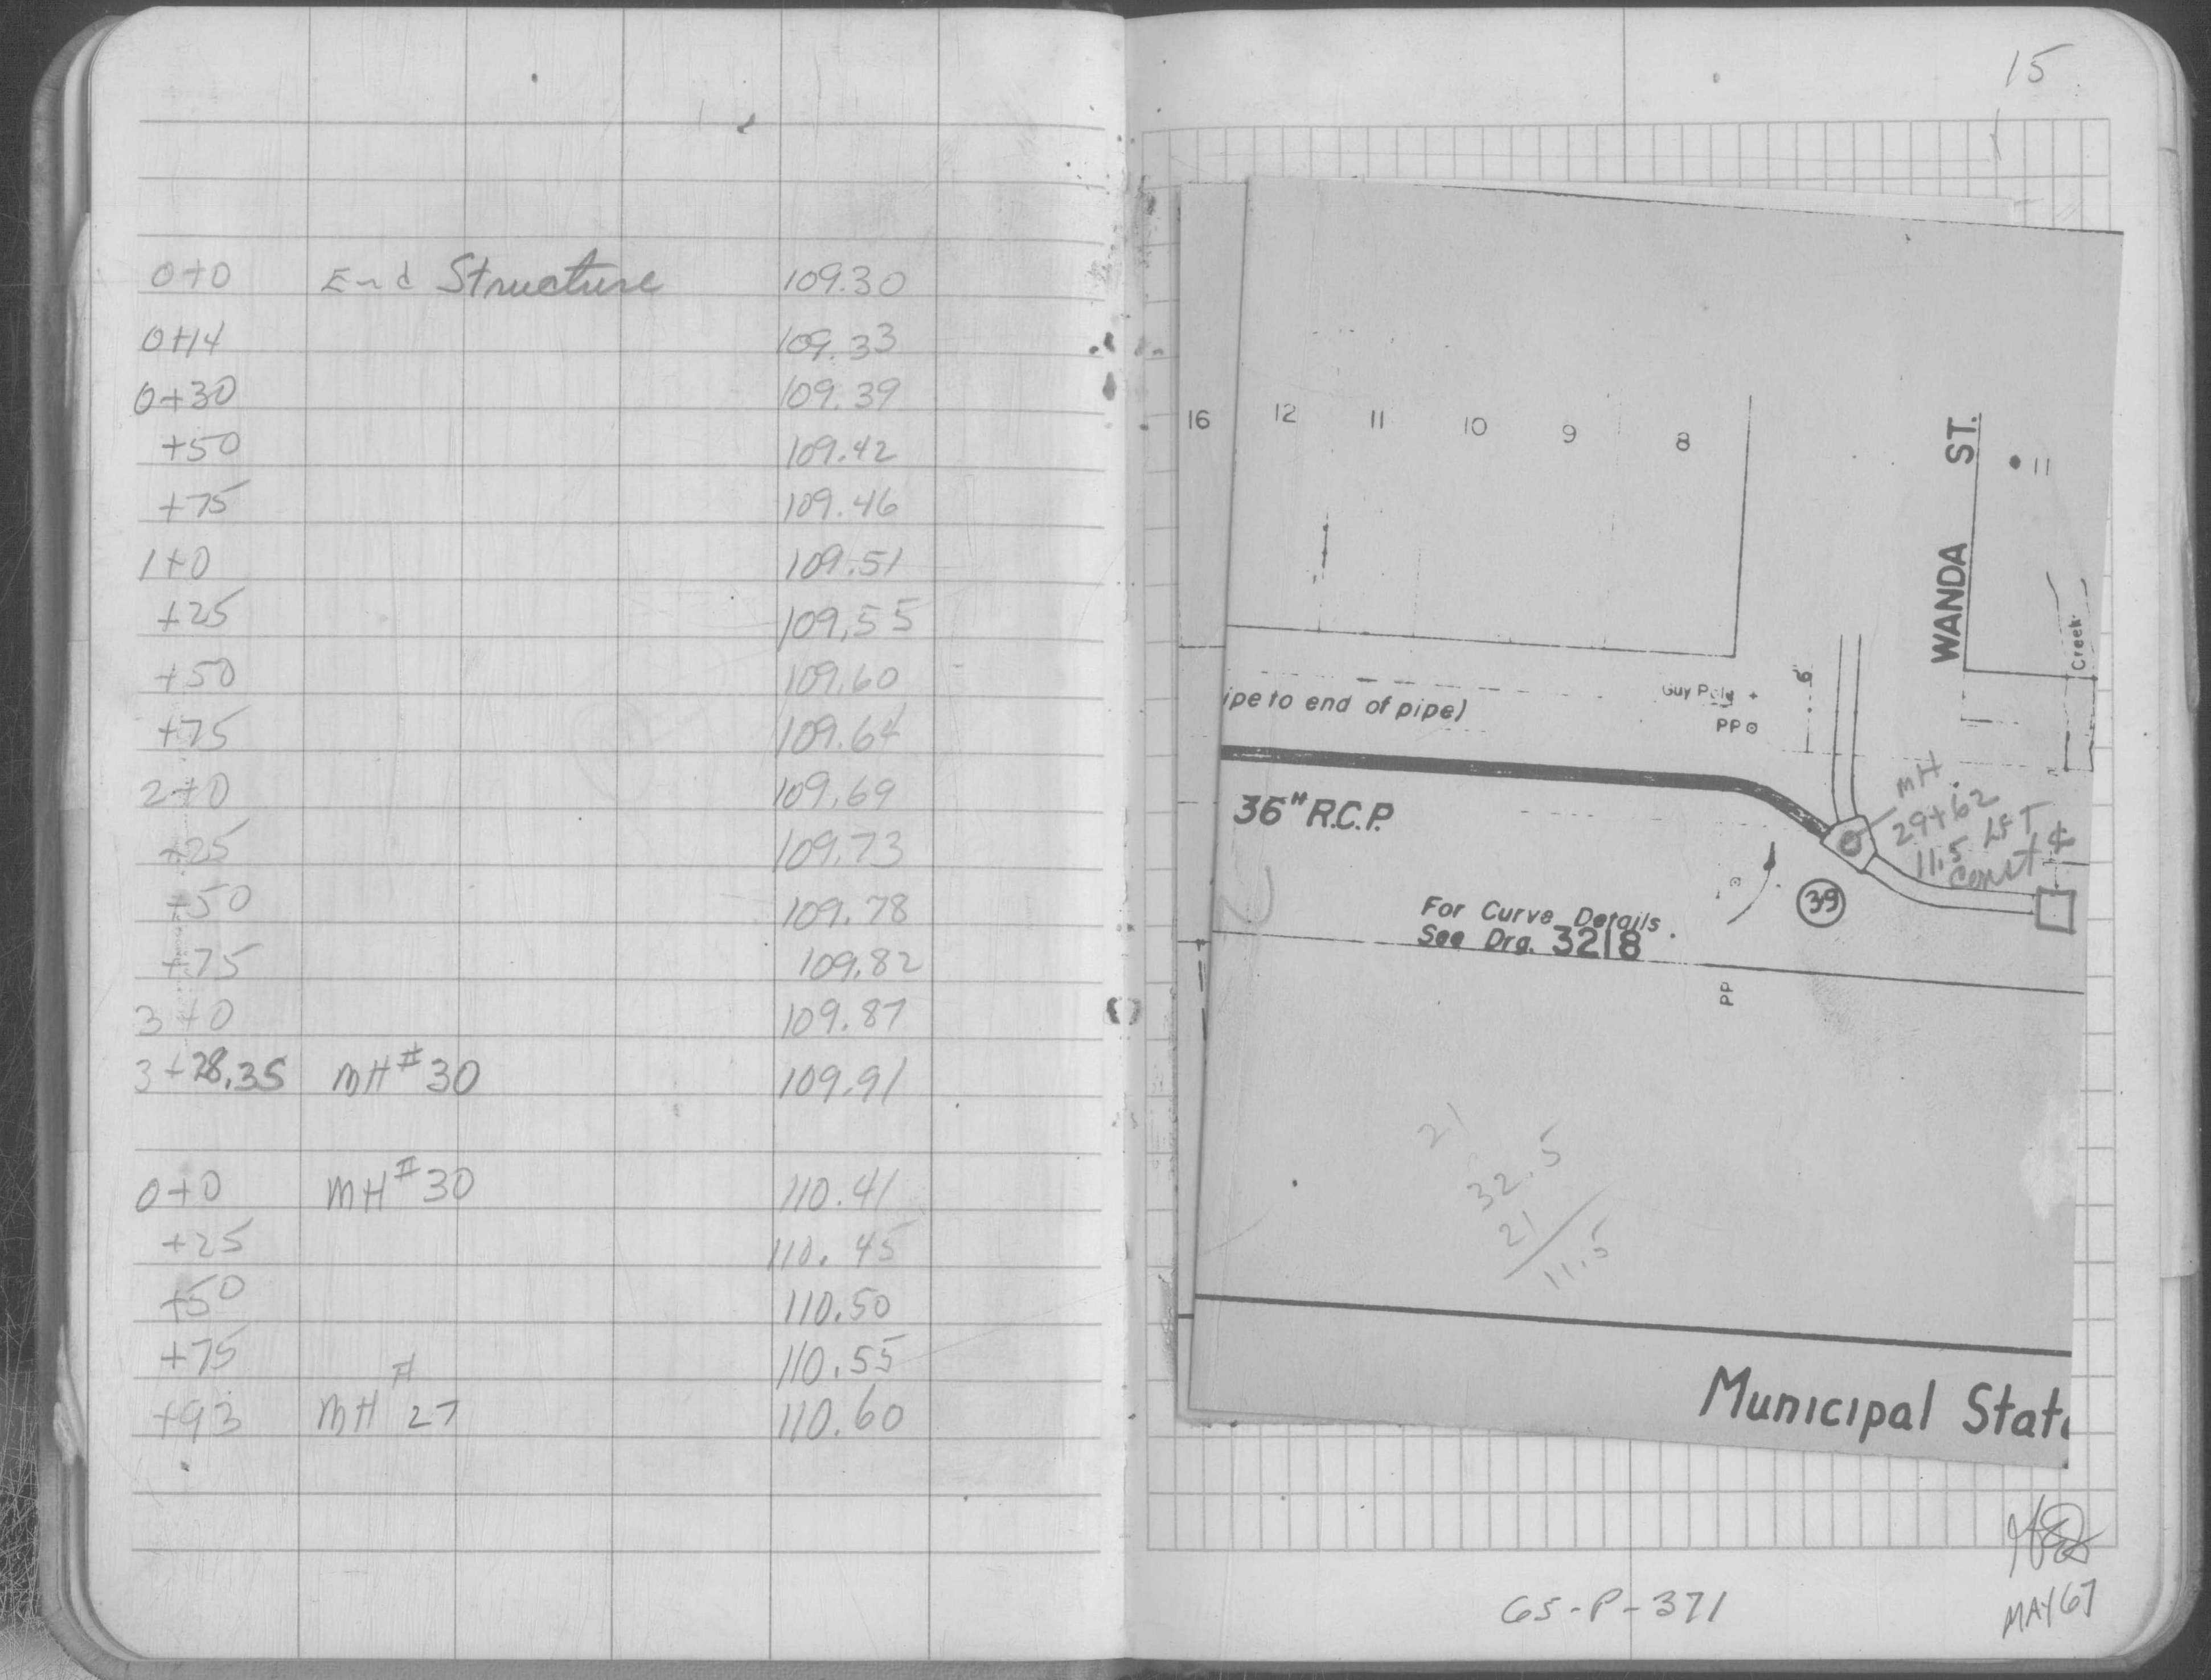 0+0 End Structure 109.30
0+14 109.33
0+30 109.39
+50 109.42
+75 109.46
1+0 109.51
+25 109.55
+50 109.60
+75 109.64
2+0 109.69
+25 109.73
+50 109.78
+75 109.82
3+0 109.87
3+28.35 MH #30 109.91
0+0 MH #30 110.41
+25 110.45
+50 110.50
+75 110.55
+93 MH # 27 110.60
15
16 12 11 10 9 8
WANDA ST.
11
Creek
6
Guy Pole +
PP
ipe to end of pipe)
36" R.C.P.
MH
29+62
11.5 LFT
Const ℄
39
For Curve Details
See Drg. 3218
PP
21
32.5
21
11.5
Municipal Stat
65-P-371
MAY 67